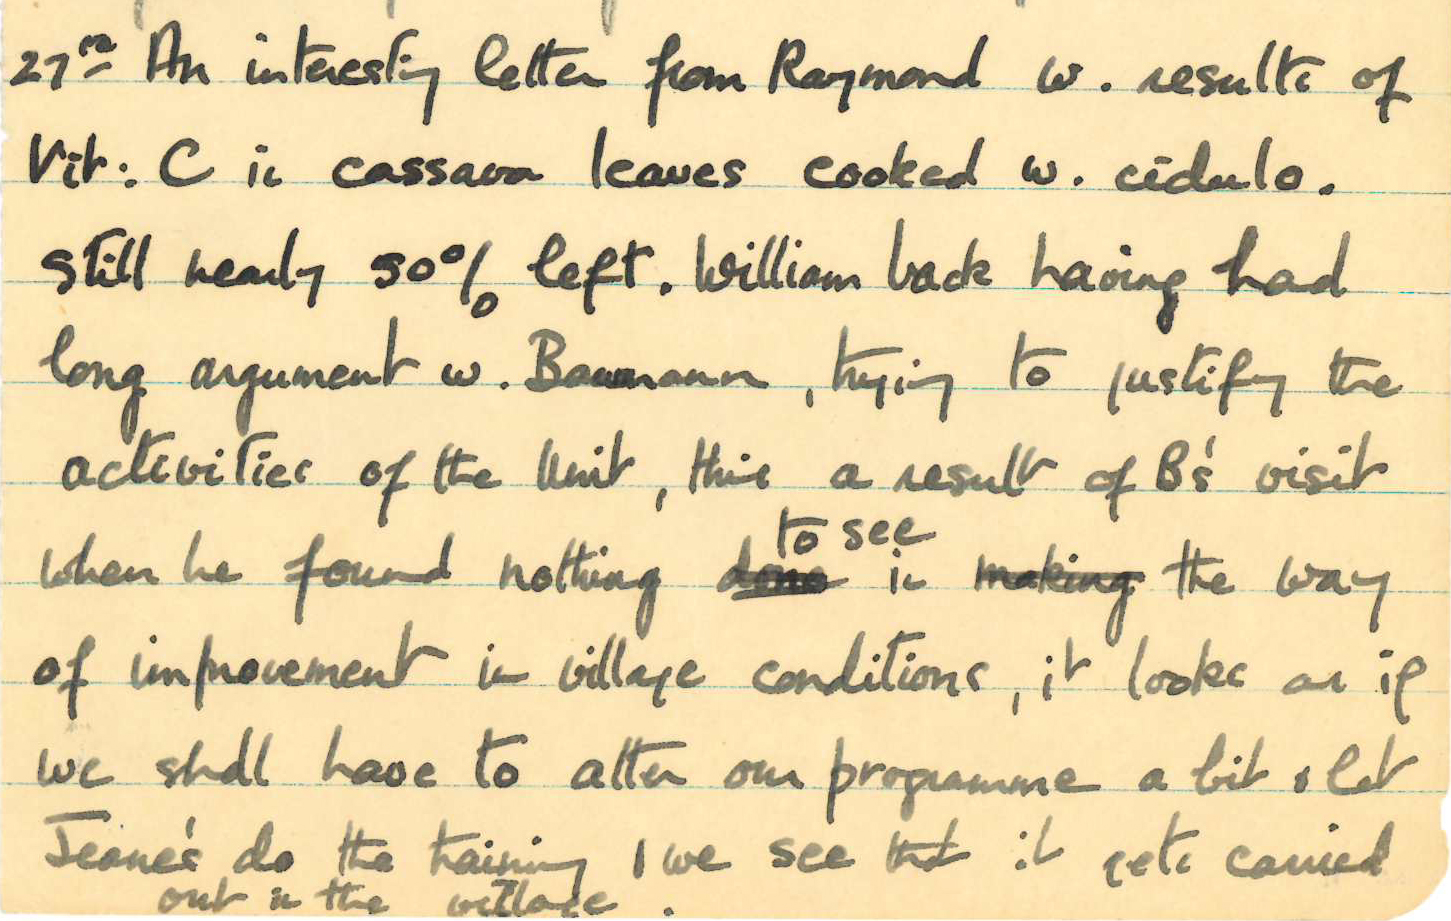 27th An interesting letter from Raymond w. results of
Vit: C in cassava leaves cooked w. cidulo.
Still nearly 50% left. William back having had
long argument w. Baumann, trying to justify the
activities of the Unit, this a result of B's visit
when he found nothing done to see in making the way
of improvement in village conditions, it looks as if
we shall have to alter our programme a bit & let
Jeanes do the training & we see that it gets carried
out in the village.